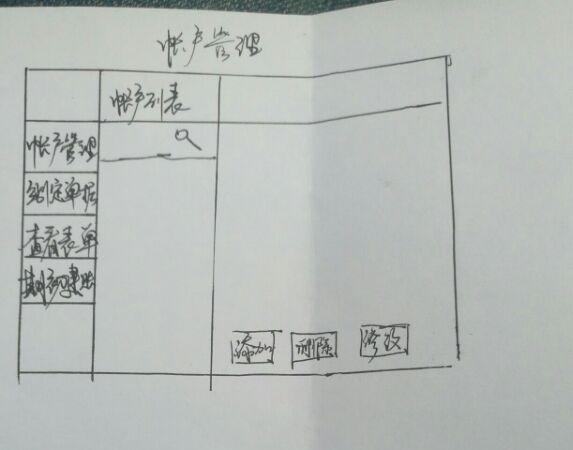 帐户管理
帐户列表
帐户管理
绑定单据
查看表单
添加
删除
修改